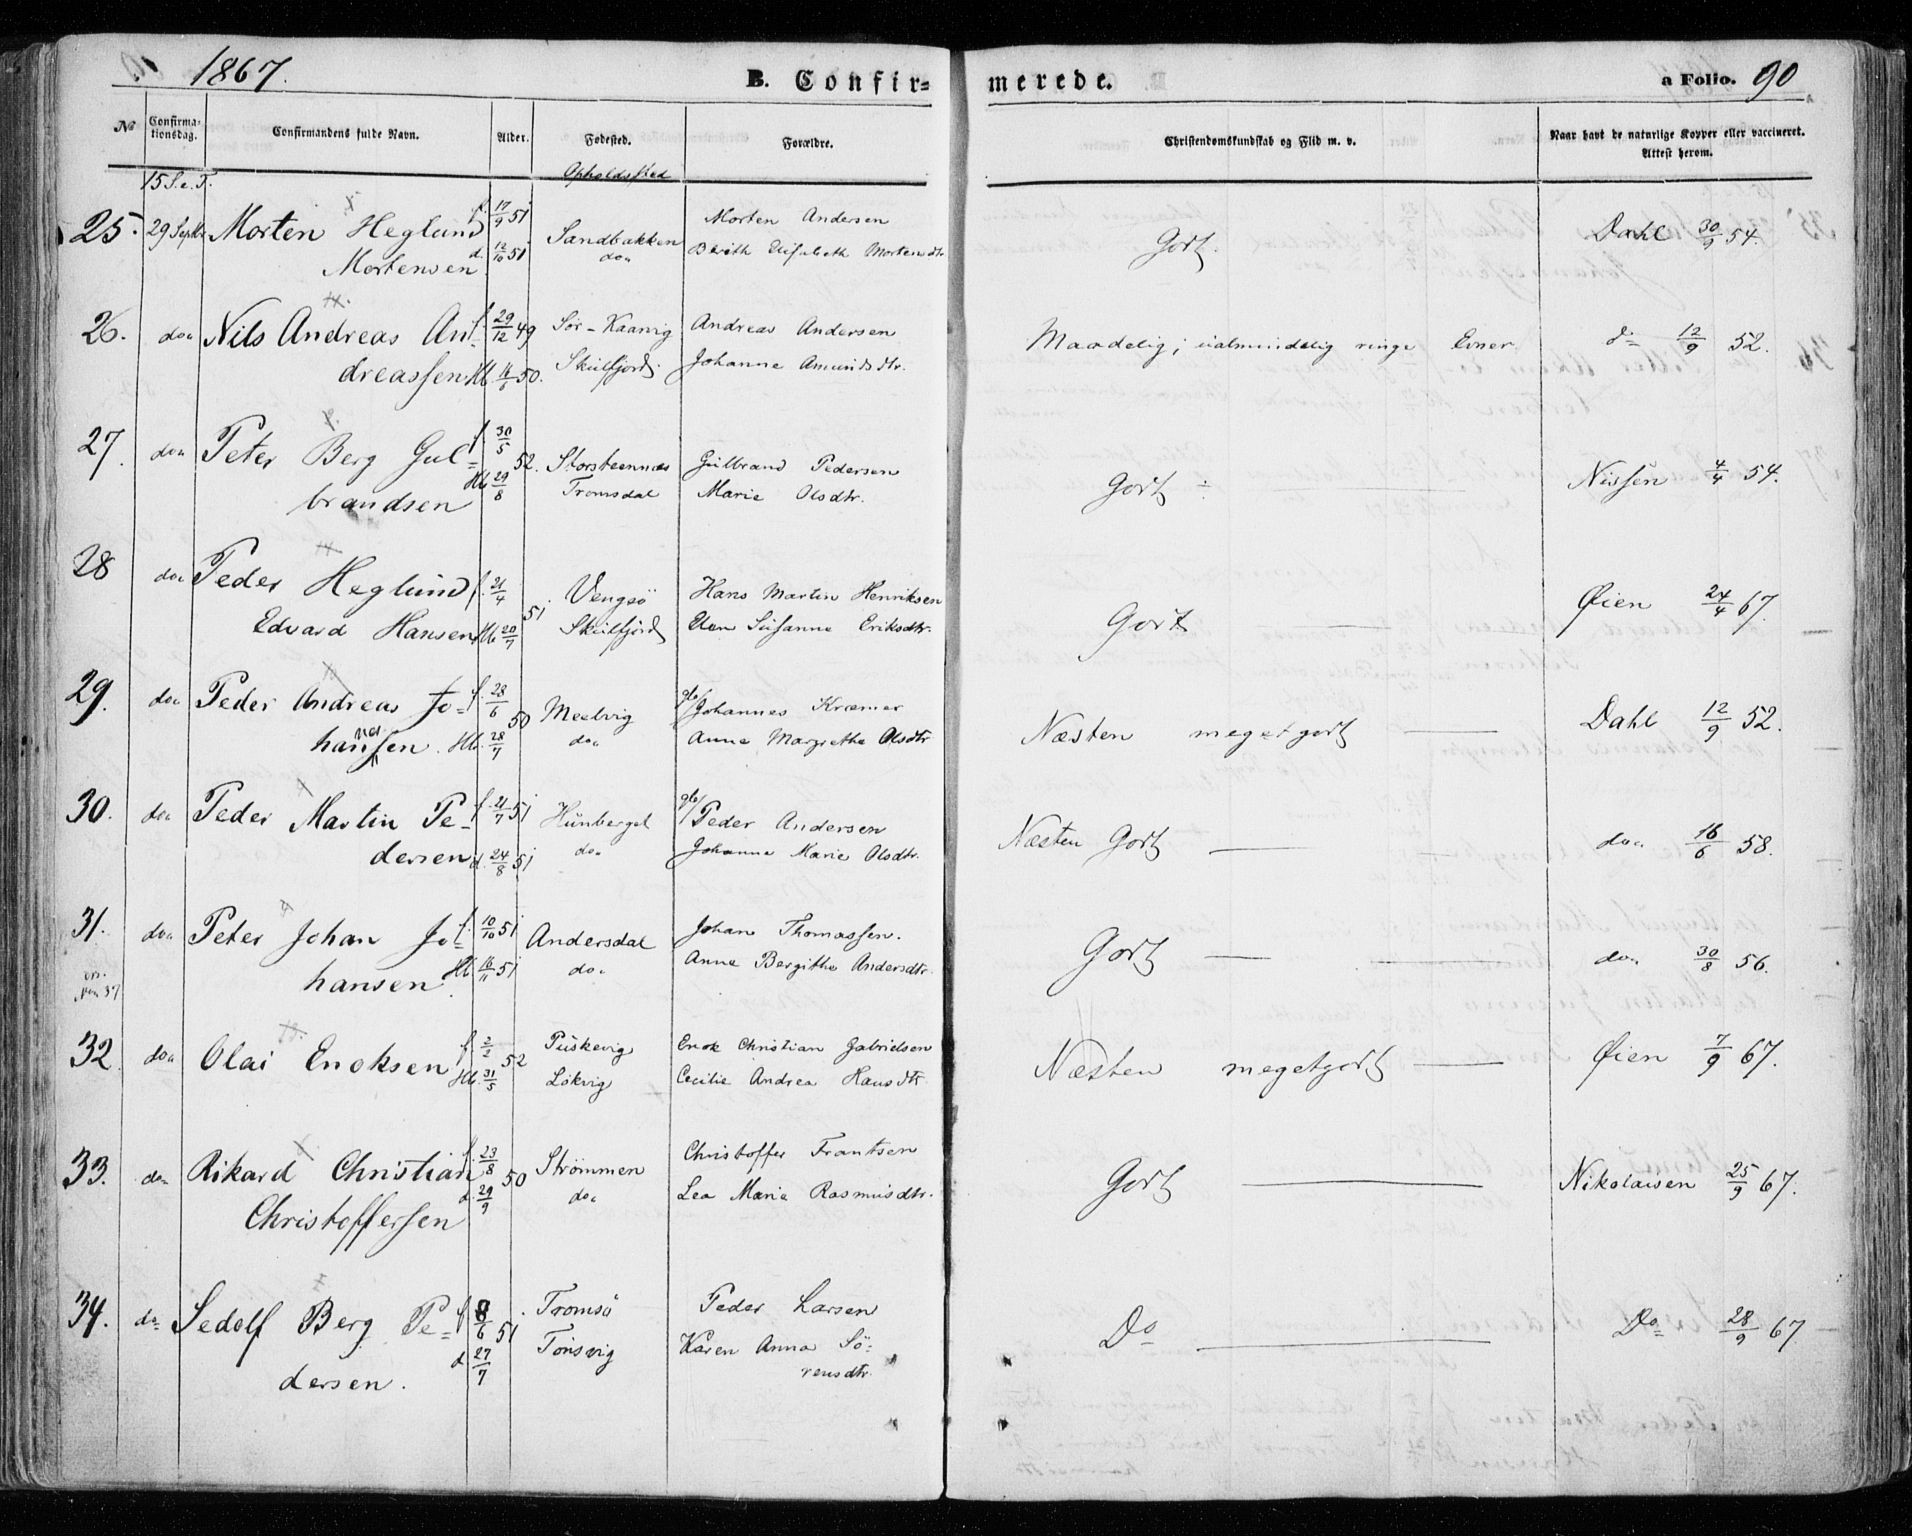 1867.
B. Confir=
merede.
a Folio. 90
No
Confirma-
tionsdag.
Confirmandens fulde Navn.
Alder.
Fødested.
Forældre.
Christendomskundskab og Flid m. v.
Naar havt de naturlige Kopper eller vaccineret.
Attest herom.
Opholdssted
15 S. e. T.
25. 29 Septbr Morten Heglund f. 17/9 51 Sandbakken Morten Andersen Godt. Dahl 30/9 54.
Mortensen d. 12/10 51 do" Berith Elisabeth Mortensdtr
26. do" Nils Andreas An= f. 29/12 49 Sør-Kaavig Andreas Andersen Maadelig; ualmindelig ringe Evner. do 12/9 52.
dreassen Hd. 16/6 50. Skulfjord Johanne Amundsdtr.
27. do" Peter Berg Gul= f. 30/5 52. Storsteennæs Gulbrand Pedersen Godt Nissen 4/4 54.
brandsen Hd 29/8 Tromsdal Marie Olsdtr.
28 do" Peder Heglund f. 21/4 51 Vengsö Hans Martin Henriksen Godt Øien 24/4 67.
Edvard Hansen Hd 20/7 Skulfjord Elen Susanne Eriksdtr.
29. do" Peder Andreas Jo= f. 28/6 50 Meelvig glb/ Johannes Kræmer Næsten meget godt Dahl 12/9 52.
hannessen. Hd. 28/7 do" Anne Margrethe Olsdtr
30. do" Peder Martin Pe= f. 21/7 51 Hünberget glb/ Peder Andersen Næsten Godt do" 16/6 58.
dersen d. 24/8 51 do" Johanna Marie Olsdtr.
31. do" Peter Johan Jo= f. 10/10 51 Andersdal Johan Thomassen. Godt do" 30/8 56.
hansen. Hd. 16/11 51 do" Anne Bergithe Andersdtr.
32 do" Olai Enoksen f. 2/2 52 Püskevig Enok Christian Gabrielsen Næsten megetgodt Øien 7/9 67.
Hd. 31/5 Lökvig Cecilie Andrea Hansdtr
33. do" Rikard Christian f. 23/8 50 Strömmen Christoffer Frantsen Godt Nikolaisen 25/9 67.
Christoffersen d. 29/9 do" Lea Marie Rasmusdtr.
34. do= Sedolf Berg Pe= f. 8/6 51 Tromsö Peder Larsen Do Do 28/9 67
dersen. d. 27/7 Tonsvig Karen Anna Sö=
rensdtr.